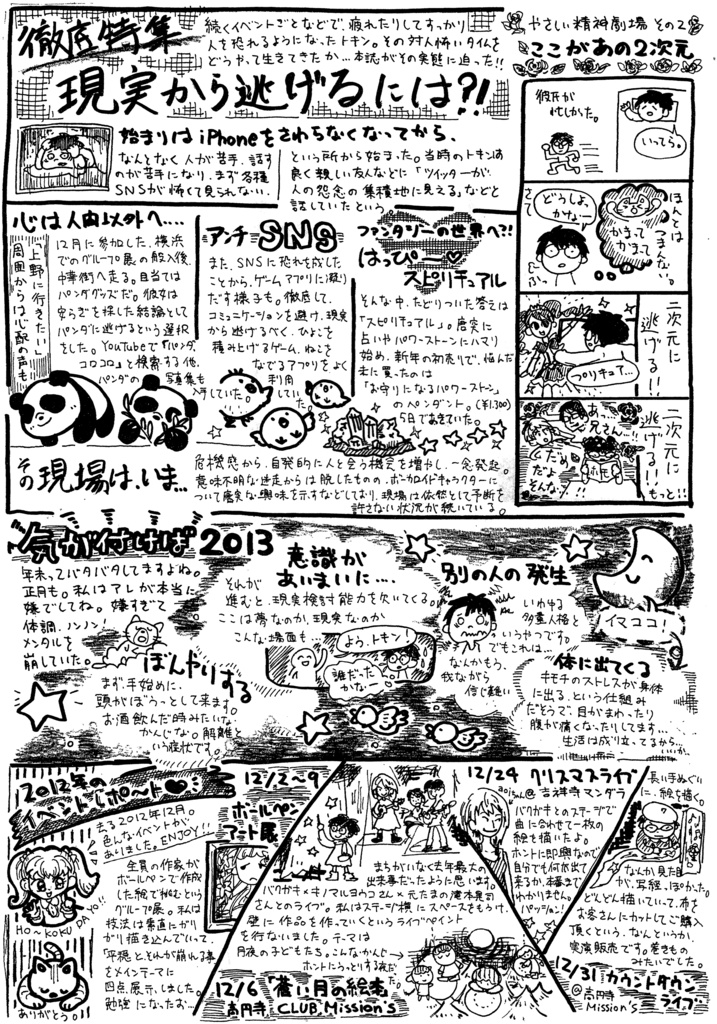 徹底特集
続くイベントごとなどで、疲れたりしてすっかり
人を恐れるようになったトキン。その対人怖いタイムを
どうやって生きてきたか…本誌がその実態に迫った!!
現実から逃げるには?!
始まりはiPhoneをさわらなくなってから、
なんとなく人が苦手、話す
のが苦手になり、まず各種
SNSが怖くて見られない、
という所から始まった。当時のトキンは
良く親しい友人などに「ツイッターが
人の怨念の集積地に見える」などと
話していたという
やさしい精神劇場 その2
ここがあの2次元
彼氏が
忙しかった。
いってら。
さて
どうしよ、
かな〜
ほんとは
つまんない。
かまって
かまって
二次元に
逃げる!!
プリキュア…
二次元に
逃げる!!
もっと!!
あ…
兄さん…!!
だめ
だよ
そんな!!
心は人間以外へ….
「上野に行きたい」
周囲からは心配の声も
12月に参加した、横浜
でのグループ展の搬入後、
中華街へ走る。目当ては
パンダグッズだ。彼女は
安らぎを探した結論として
パンダに逃げるという選択
をした。YouTubeで「パンダ、
コロコロ」と検索する他、
パンダの写真集も
入手していた。
アンチSNS
また、SNSに恐れを成した
ことから、ゲームアプリに凝り
だす様子も。徹底して、
コミュニケーションを避け、現実
から逃げるべく、ひよこを
積み上げるゲーム、ねこを
なでるアプリをよく
利用していた。
ファンタジーの世界へ?!
はっぴー♡
スピリチュアル
そんな中、たどりついた答えは
「スピリチュアル」。唐突に
占いやパワーストーンにハマり
始め、新年の初売りで、悩んだ
末に買ったのは
「お守りになるパワーストーン」
のペンダント。(¥1,300)
5日であきていた。
その現場は、いま…
危機感から、自発的に人と会う機会を増やし、一念発起。
意味不明な迷走からは脱したものの、ボーカロイドキャラクターに
ついて唐突な興味を示すなどしており、現場は依然として予断を
許さない状況が続いている。
気が付けば2013
年末ってバタバタしてますよね。
正月も。私はアレが本当に
嫌でしてね。嫌すぎて
体調、ノンノン!
メンタルを
崩していた。
ぼんやりする
まず、手始めに、
頭がぼうっとして来ます。
お酒飲んだ時みたいな
かんじな。解離と
いう症状です。
意識が
あいまいに….
それが
進むと、現実検討能力を欠いてくる。
ここは夢なのか、現実なのか
こんな場面も…
よう、トキン!
誰だった
かな〜
別の人の発生
いわゆる
多重人格と
いうやつです。
でもこれは…
なんかもう、
我ながら
信じ難い
イマココ!
体に出てくる
キモチのストレスが身体
に出る、という仕組み
だそうで、目がまわったり
腹が痛くなったりしてます…
生活は成り立ってるから、
いいか…
2012年の
イベントレポ〜ト♥
去る2012年12月。
色んなイベントが、
ありました。ENJOY!!
HO〜KOKU DA YO!!
ありがとう。
12/2〜9
ボールペン
アート展
全員の作家が
ボールペンで作成
した絵で挑むという
グループ展。私は
技法は素直にガリ
ガリ描き込んでいって、
「平穏」と、それが崩れる事
をメインテーマに
四点、展示しました。
勉強になったお…
まちがいなく去年最大の
出来事だったように思います。
バクガキ×キノマルヨウコさん×元たまの滝本晃司
さんとのライヴ。私はステージ横にスペースをもうけ、
壁に作品を作っていくというライブペイント
を行ないました。テーマは
月夜の子どもたち。こんなかんじ→
ホントにうっとりする夜だった。
12/6「蒼い月の絵本」
@高円寺 CLUB Mission's
12/24 クリスマスライブ
@吉祥寺マンダラ
バクガキとのステージで
曲に合わせて一枚の
絵も描いたよ。
ホントに即興なので
自分でも何が出て
来るか、本番まで
わかりません。
パッション!
長い手ぬぐい
に、絵も描く。
なんか見た目
が、写経っぽかった。
どんどん描いていって、布を
お客さんにカットしてご購入
頂くという、なんというか、
実演販売です。巻きもの
みたいでした。
12/31 カウントダウン
ライブ
@高円寺
Mission's